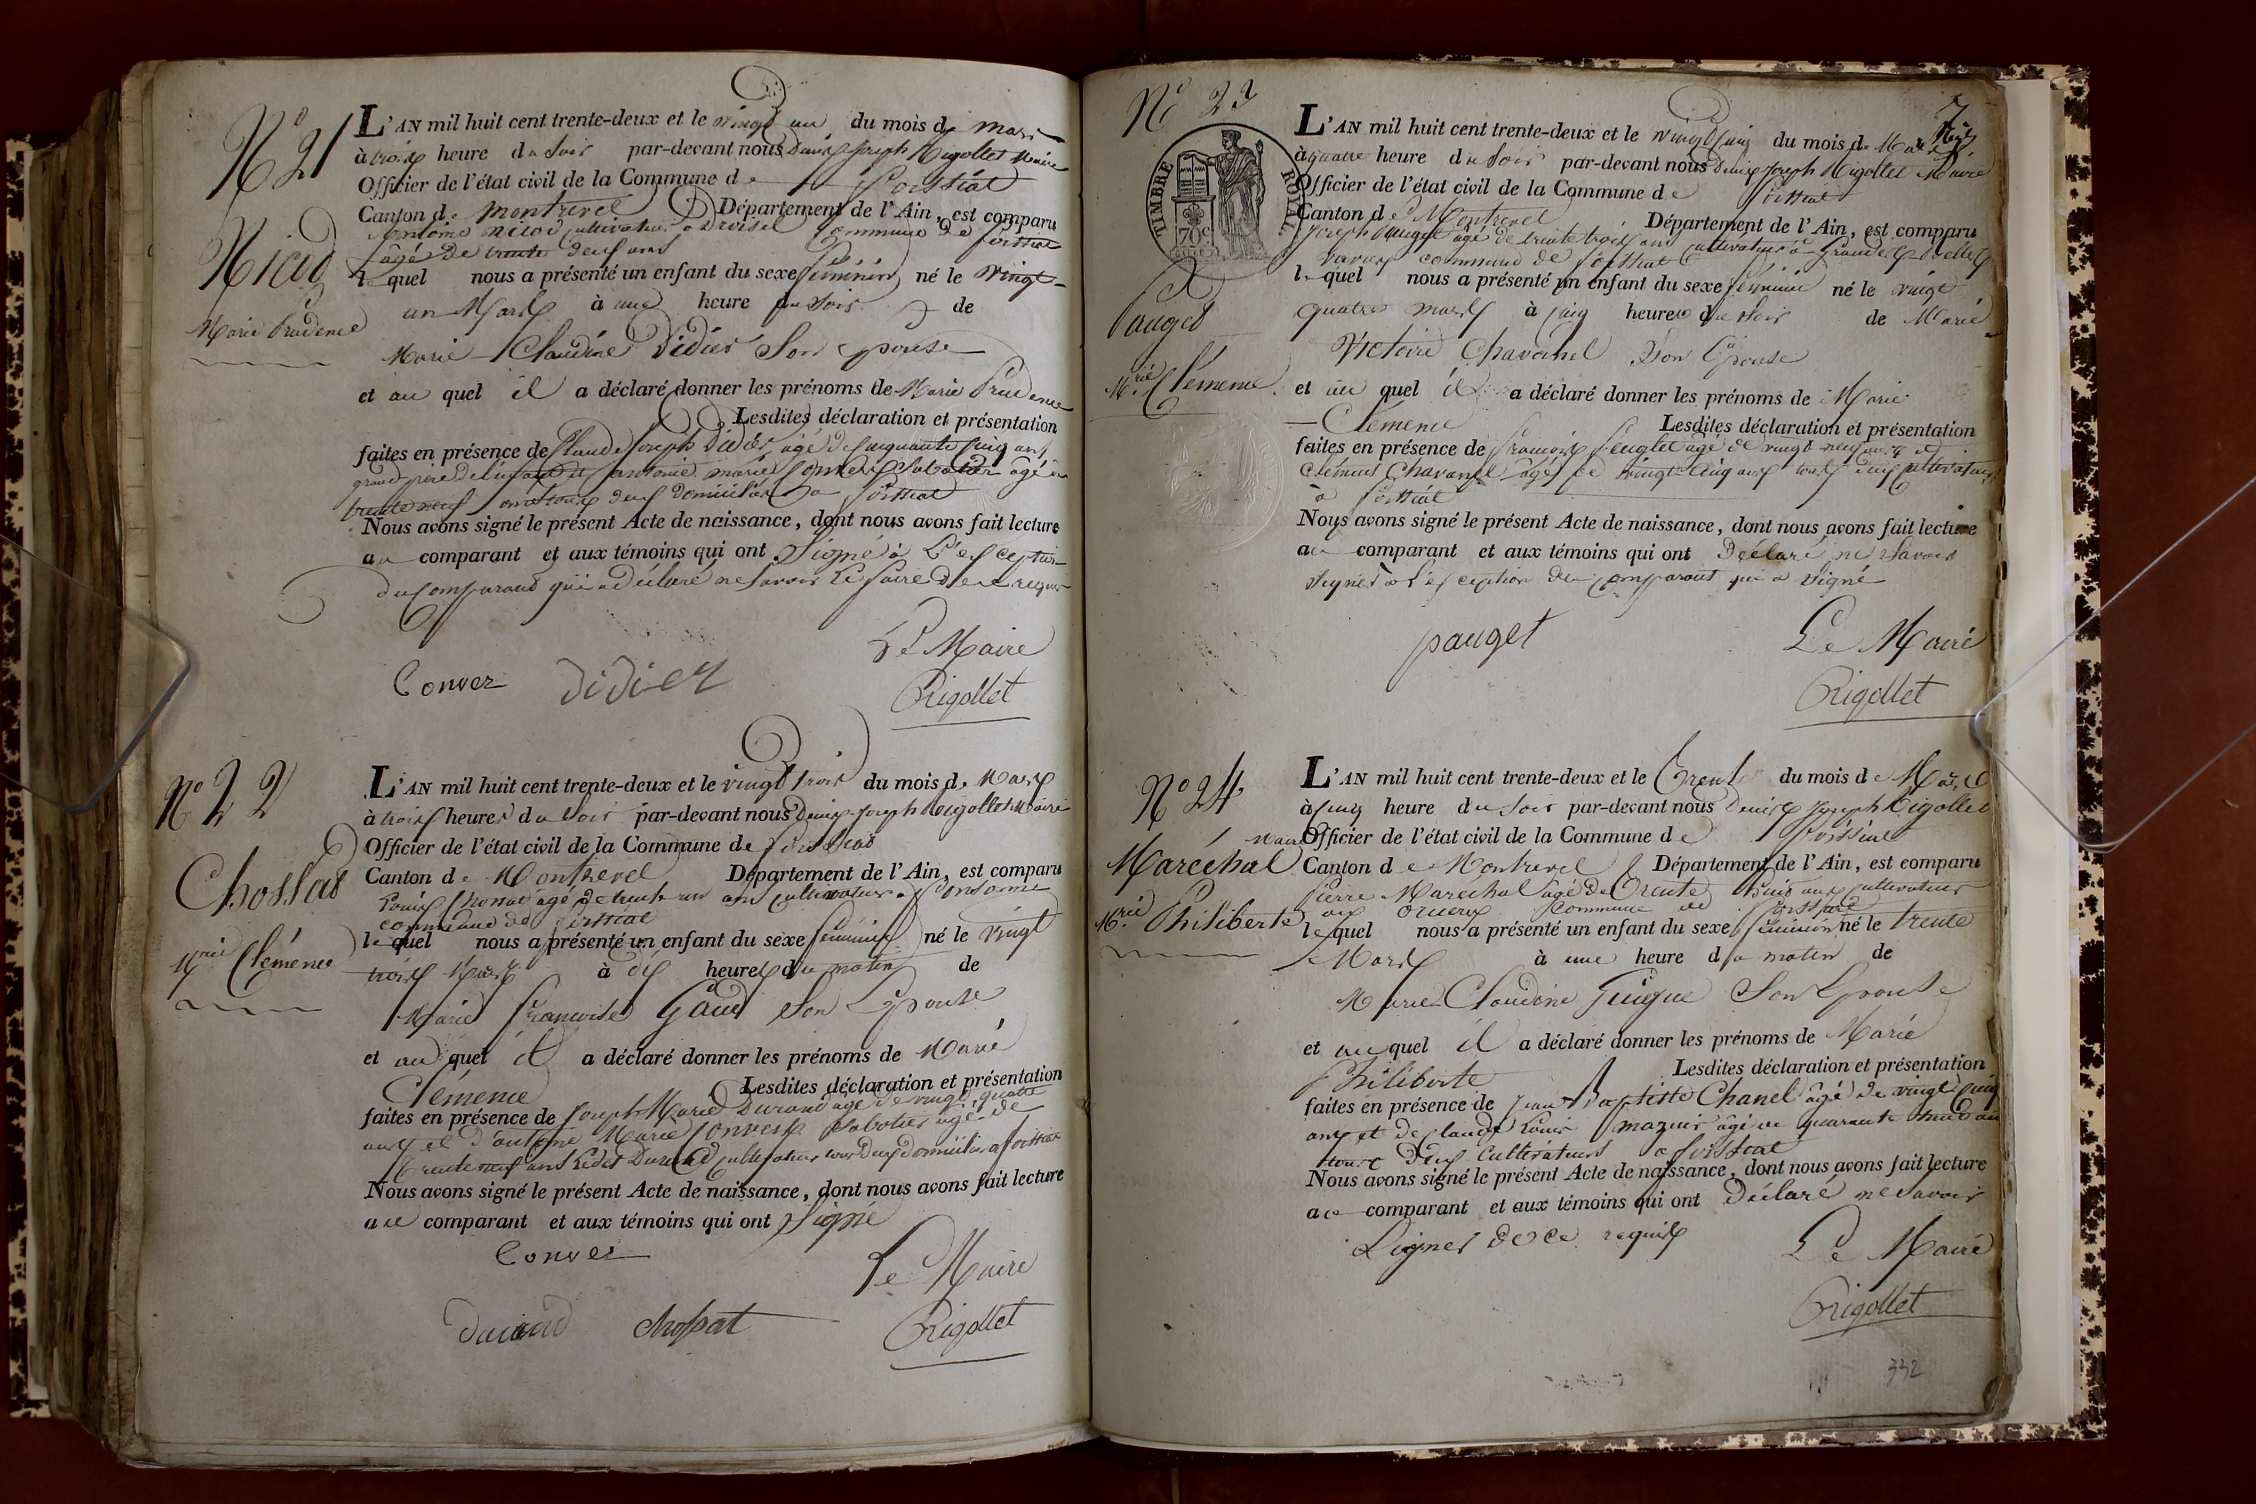 N° 21
Nicod
Marie Prudence
L'AN mil huit cent trente-deux et le vingt un du mois de mars
à trois heure du soir par-devant nous Denis Joseph Rigollet Maire
Officier de l'état civil de la Commune de Foissiat
Canton de Montrevel Département de l'Ain, est comparu
Antoine Nicod cultivateur à commune de Foissiat
âgé de trente deux ans
lequel nous a présenté un enfant du sexe féminin né le vingt
un Mars à une heure du soir de
Marie Claudine Didier son épouse
et au quel il a déclaré donner les prénoms de Marie Prudence
Lesdites déclaration et présentation
faites en présence de Claude Joseph Didier âgé de cinquante cinq ans
grand père de l'enfant et antoine marie Convers Sabotier âgé de
trente neuf ans tous deux domiciliés à Foissiat
Nous avons signé le présent Acte de naissance, dont nous avons fait lecture
au comparant et aux témoins qui ont signé à l'exception
du Comparant qui a déclaré ne savoir le faire de ce requis
Le Maire
Conver didier
Rigollet
N° 22
Chossat
Mrie Clémence
L'AN mil huit cent trente-deux et le vingt trois du mois de Mars
à trois heures du soir par-devant nous Denis Joseph Rigollet Maire
Officier de l'état civil de la Commune de Foissiat
Canton de Montrevel Département de l'Ain, est comparu
Louis Chossat âgé de trente un ans cultivateur à
commune de Foissiat
lequel nous a présenté un enfant du sexe féminin né le vingt
trois Mars à dix heures du matin de
Marie Françoise Gaud son épouse
et au quel il a déclaré donner les prénoms de Marie
Clémence Lesdites déclaration et présentation
faites en présence de Joseph Marie Durand âgé de vingt quatre
ans et d'antoine Marie Convers Sabotier âgé de
trente neuf ans Ledit Durand cultivateur tous deux domiciliés à Foissiat
Nous avons signé le présent Acte de naissance, dont nous avons fait lecture
au comparant et aux témoins qui ont signé
Conver
Le Maire
durand chossat
Rigollet
N° 23
TIMBRE ROYAL
70c
Pauget
Mrie Clémence
7
L'AN mil huit cent trente-deux et le vingt cinq du mois de Mars
à quatre heure du soir par-devant nous Denis Joseph Rigollet Maire
Officier de l'état civil de la Commune de Foissiat
Canton de Montrevel Département de l'Ain, est comparu
Joseph Pauget âgé de trente trois ans cultivateur à
commune de Foissiat
lequel nous a présenté un enfant du sexe féminin né le vingt
quatre mars à cinq heures du soir de Marie
Victoire Chavanel son épouse
et au quel il a déclaré donner les prénoms de Marie
Clémence Lesdites déclaration et présentation
faites en présence de François âgé de vingt neuf ans et
Clément Chavanel âgé de vingt cinq ans tous deux cultivateurs
à Foissiat
Nous avons signé le présent Acte de naissance, dont nous avons fait lecture
au comparant et aux témoins qui ont déclaré ne savoir
signer à l'exception du comparant qui a signé
pauget
Le Maire
Rigollet
N° 24
Maréchal
Mrie Philiberte
L'AN mil huit cent trente-deux et le trente du mois de Mars
à cinq heure du soir par-devant nous Denis Joseph Rigollet
Maire Officier de l'état civil de la Commune de Foissiat
Canton de Montrevel Département de l'Ain, est comparu
Pierre Marechal âgé de trente huit ans cultivateur
aux commune de Foissiat
lequel nous a présenté un enfant du sexe féminin né le trente
Mars à une heure du matin de
Marie Claudine Guigue son épouse
et au quel il a déclaré donner les prénoms de Marie
Philiberte Lesdites déclaration et présentation
faites en présence de Jean Baptiste Chanel âgé de vingt cinq
ans et de claude Louis Mazuir âgé de quarante ans
tous deux cultivateurs à Foissiat
Nous avons signé le présent Acte de naissance, dont nous avons fait lecture
au comparant et aux témoins qui ont déclaré ne savoir
signer de ce requis
Le Maire
Rigollet
332